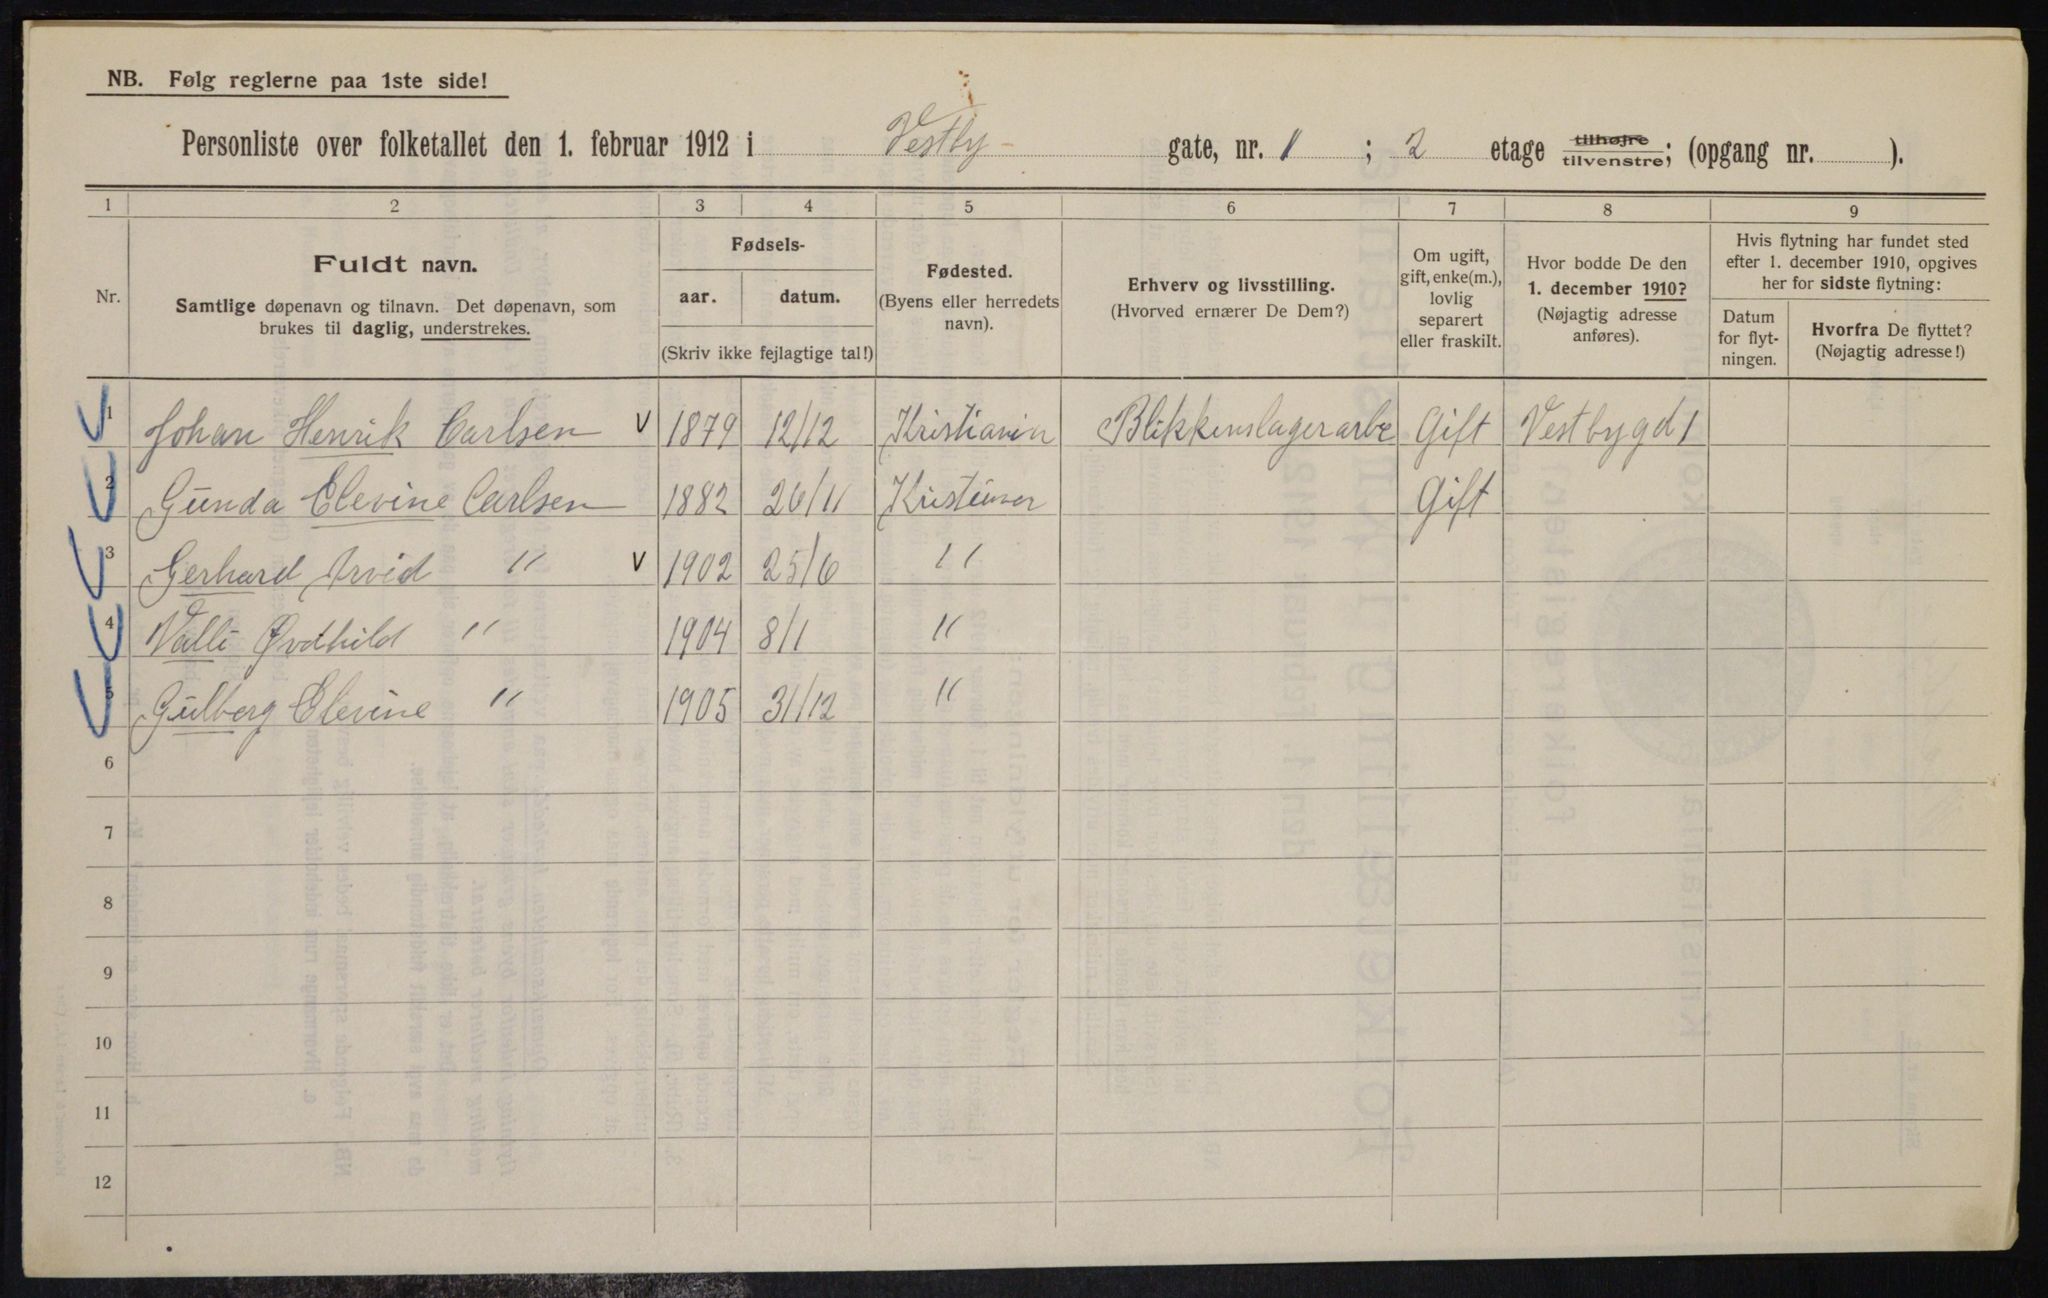 NB. Følg reglerne paa 1ste side!
Personliste over folketallet den 1. februar 1912 i Vestby- gate, nr. 1 ; 2 etage tilhøjre tilvenstre; (opgang nr. ).
1 2 3 4 5 6 7 8 9
Nr.
Fuldt navn.
Samtlige døpenavn og tilnavn. Det døpenavn, som
brukes til daglig, understrekes.
Fødsels-
aar. datum.
(Skriv ikke fejlagtige tal!)
Fødested.
(Byens eller herredets
navn).
Erhverv og livsstilling.
(Hvorved ernærer De Dem?)
Om ugift,
gift, enke(m.),
lovlig
separert
eller fraskilt.
Hvor bodde De den
1. december 1910?
(Nøjagtig adresse
anføres).
Hvis flytning har fundet sted
efter 1. december 1910, opgives
her for sidste flytning:
Datum
for flyt-
ningen.
Hvorfra De flyttet?
(Nøjagtig adresse!)
1 Johan Henrik Carlsen v 1879 12/12 Kristiania Blikkenslagerarbe Gift Vestbygd 1
2 Gunda Elevine Carlsen 1882 26/11 Gift
3 Gerhard Arvid " v 1902 25/6 "
4 Valli Øvdhild " 1904 8/1 "
5 Gulberg Elevine " 1905 31/12 "
6
7
8
9
10
11
12